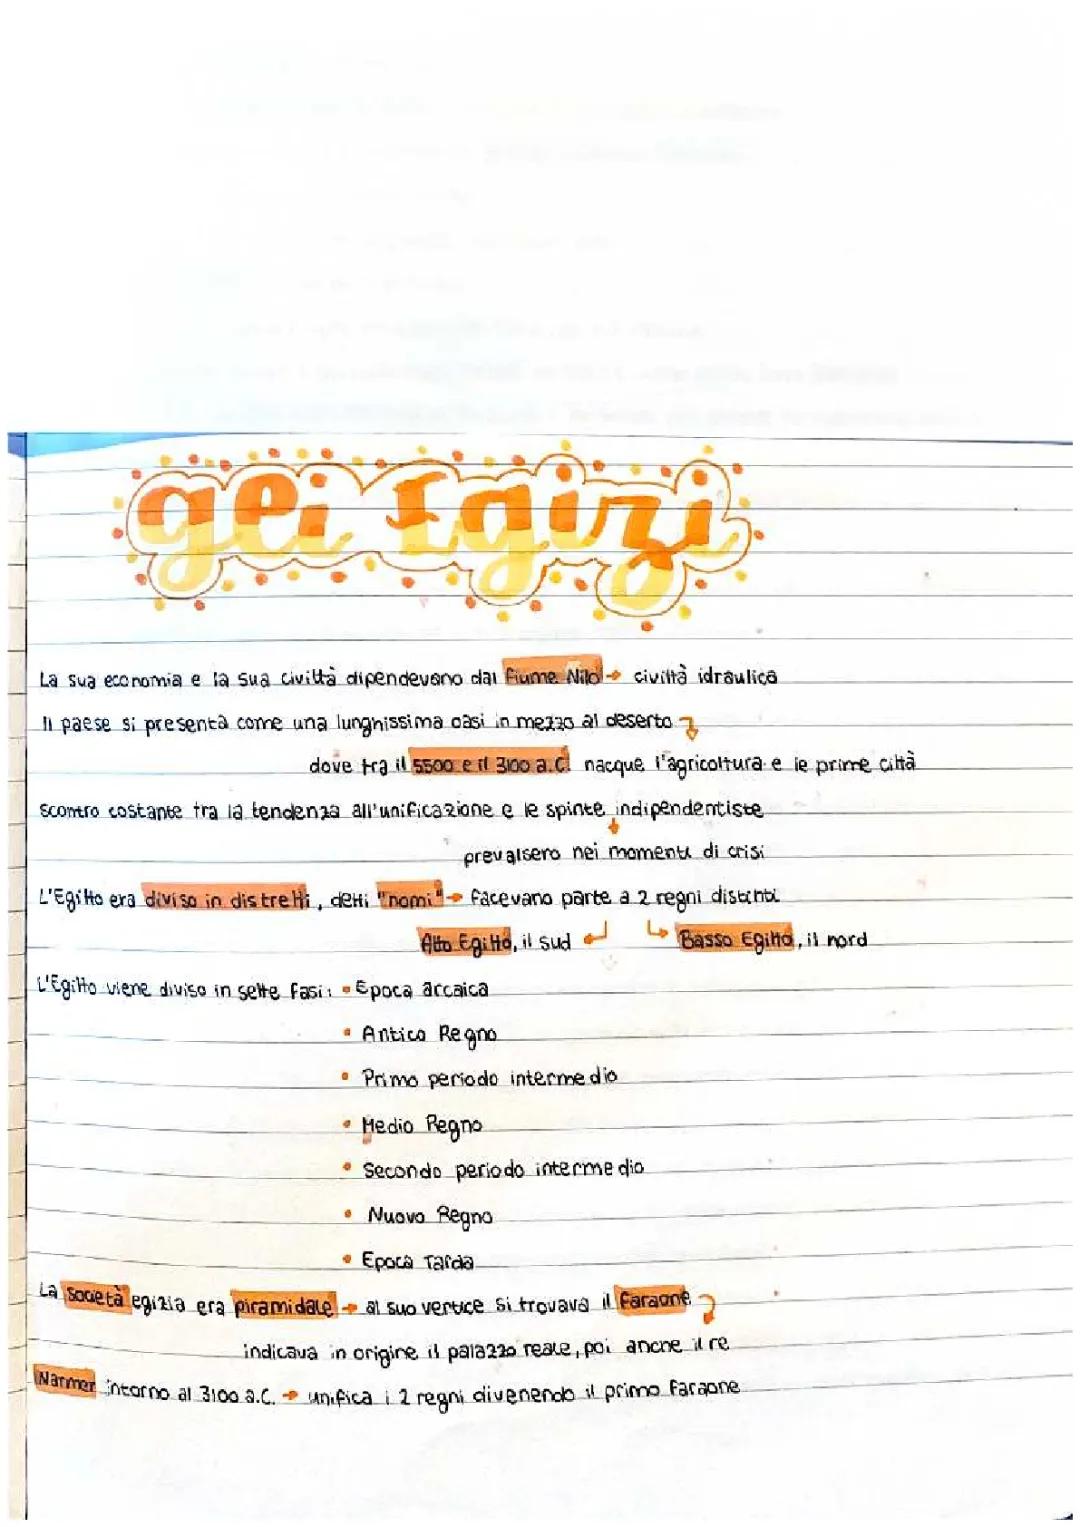 gli Egizi
La sua economia e la sua civiltà dipendevano dal fiume Nilo → civiltà idraulica
Il paese si presenta come una lunghissima oasi in mezzo al deserto
dove tra il 5500 e il 3100 a.C. nacque l'agricoltura e le prime città
Scontro costante tra la tendenza all'unificazione e le spinte indipendentiste
prevalsero nei momenti di crisi
L'Egitto era diviso in distretti, detti "nomi" → facevano parte a 2 regni distinti
Alto Egitto, il sud ↲ ↳ Basso Egitto, il nord
L'Egitto viene diviso in sette fasi: • Epoca arcaica
• Antico Regno
• Primo periodo intermedio
• Medio Regno
• Secondo periodo intermedio
• Nuovo Regno
• Epoca Tarda
La società egizia era piramidale → al suo vertice si trovava il faraone
indicava in origine il palazzo reale, poi anche il re
Narmer intorno al 3100 a.C. → unifica i 2 regni divenendo il primo faraone